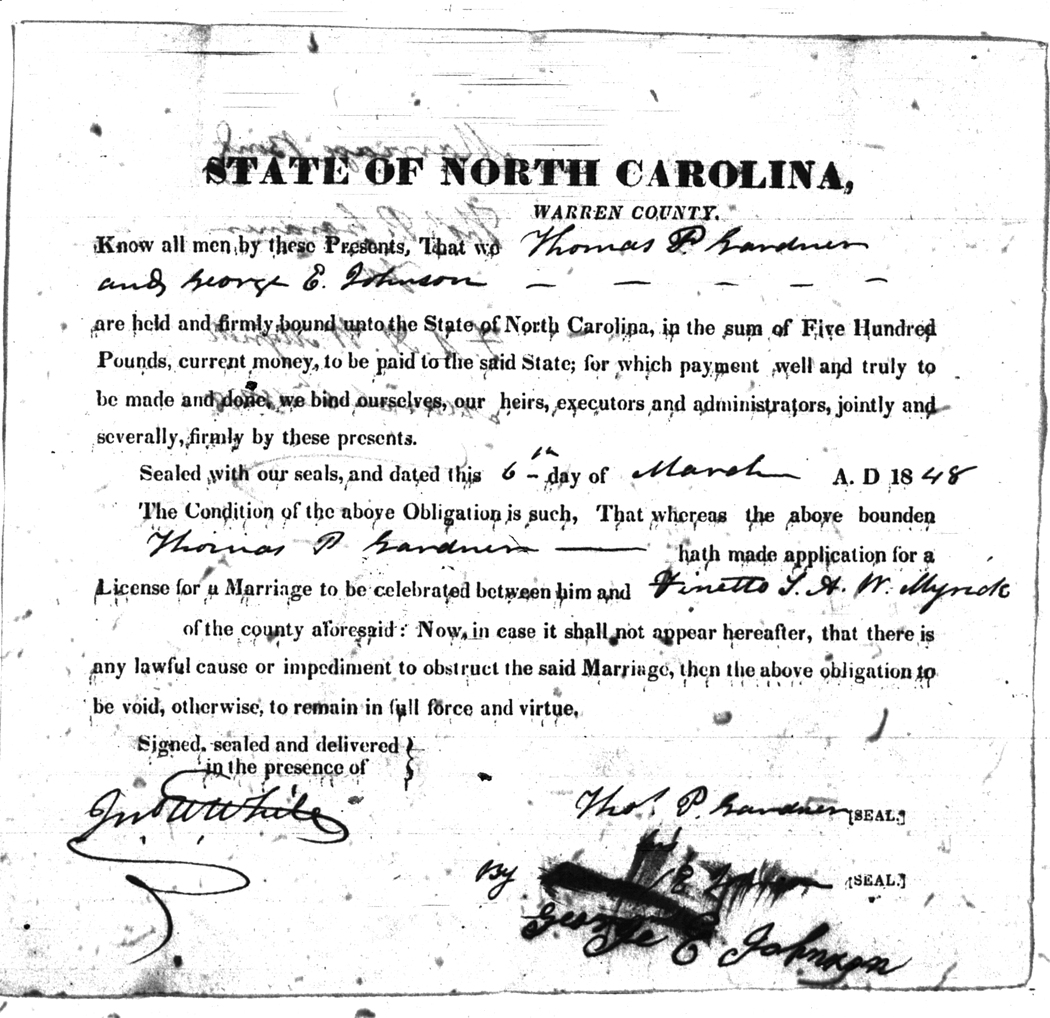 STATE OF NORTH CAROLINA,
WARREN COUNTY.
Know all men by these Presents, That we Thomas P. Gardner
and George E. Johnson — — — — —
are held and firmly bound unto the State of North Carolina, in the sum of Five Hundred
Pounds, current money, to be paid to the said State; for which payment well and truly to
be made and done, we bind ourselves, our heirs, executors and administrators, jointly and
severally, firmly by these presents.
Sealed with our seals, and dated this 6th day of March A. D 1848
The Condition of the above Obligation is such, That whereas the above bounden
Thomas P Gardner — hath made application for a
License for a Marriage to be celebrated between him and A. W. Myrick
of the county aforesaid: Now, in case it shall not appear hereafter, that there is
any lawful cause or impediment to obstruct the said Marriage, then the above obligation to
be void, otherwise, to remain in full force and virtue.
Signed, sealed and delivered }
in the presence of
Jno W White
Thos. P. Gardner [SEAL.]
By E Johnson [SEAL.]
George E Johnson